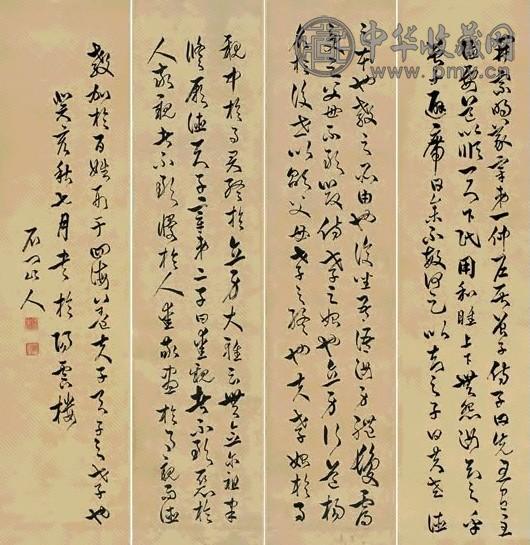 開宗明義章第一仲尼居曾子侍子曰先王有至
德要道以順天下民用和睦上下無怨汝知之乎
曾子避席曰參不敏何足以知之子曰夫孝德
之本也教之所由生也復坐吾語汝身體髮膚
受之父母不敢毀傷孝之始也立身行道揚
名於後世以顯父母孝之終也夫孝始於事
親中於事君終於立身大雅云無念爾祖聿
修厥德天子章第二子曰愛親者不敢惡於
人敬親者不敢慢於人愛敬盡於事親而德
教加於百姓刑于四海蓋天子之孝也
癸亥秋七月書於陽雲樓
石門山人
中华收藏网
www.pmsc.cn